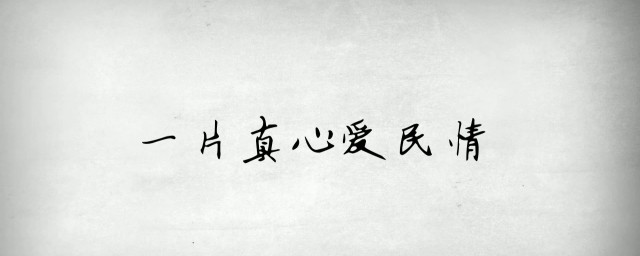 一片真心爱民情